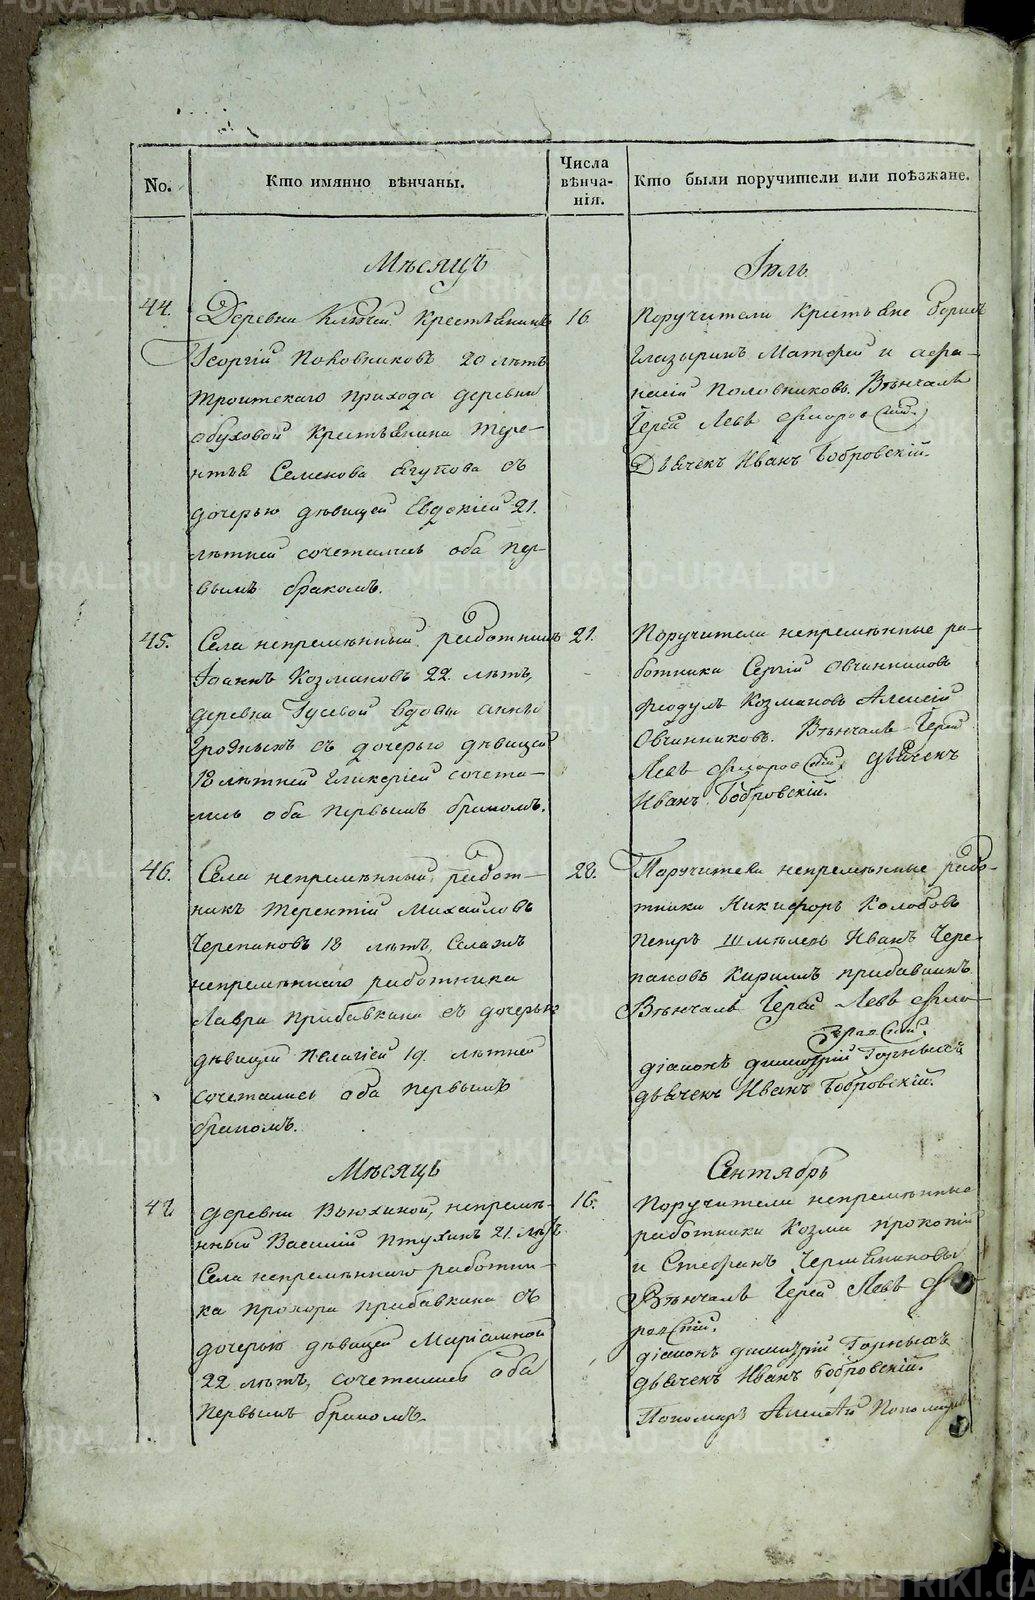 No.
Кто имянно вѣнчаны.
Числа
вѣнча-
нія.
Кто были поручители или поѣзжане.
Мѣсяцъ
Іюль
44.
Деревни Ключей Крестьянинъ
Георгій Половниковъ 20 лѣтъ
Троитскаго прихода деревни
Обуховой Крестьянина Тере-
нтья Семенова Ягупова съ
дочерью дѣвицей Евдокіей 21.
лѣтней сочетались оба пер-
вымъ бракомъ.
16
Поручители Крестьяне Борисъ
Глазыринъ Матфей и Афа-
насій Половниковъ. Вѣнчалъ
Іерей Левъ
Дьячекъ Иванъ Бобровскій.
45.
Села непремѣнный работникъ
Іоаннъ Козмаковъ 22 лѣтъ,
деревни Гусевой вдовы Анны
съ дочерью дѣвицей
18 лѣтней Гликеріей сочета-
лись оба первымъ бракомъ.
21.
Поручители непремѣнные ра-
ботники Сергій Овчинниковъ
Феодулъ Козмаковъ Алексій
Овчинниковъ. Вѣнчалъ Іерей
Левъ дьячекъ
Иванъ Бобровскій.
46.
Села непремѣнный работ-
никъ Терентій Михайловъ
Черепановъ 18 лѣтъ, Села
непремѣннаго работника
Лавра Прибавкина съ дочерью
дѣвицей Пелагіей 19. лѣтней
сочетались оба первымъ
бракомъ.
28.
Поручители непремѣнные рабо-
тники Никифоръ Колобовъ
Петръ Шмѣлевъ Иванъ Чере-
пановъ Кирилъ Прибавкинъ
Вѣнчалъ Іерей Левъ
діаконъ Димитрій Горныхъ
дьячекъ Иванъ Бобровскій.
Мѣсяцъ
Сентябрь
47
деревни Вьюхиной, непремѣ-
нный Василій Птухинъ 21. лѣтъ
Села непремѣннаго работни-
ка Прохора Прибавкина съ
дочерью дѣвицей Маріамной
22 лѣтъ, сочетались оба
первымъ бракомъ.
16.
Поручители непремѣнные
работники Козма Прокопій
и Стефанъ
Вѣнчалъ Іерей Левъ
діаконъ Димитрій Горныхъ
дьячекъ Иванъ Бобровскій.
Пономарь Алексѣй
METRIKI.GASO-URAL.RU